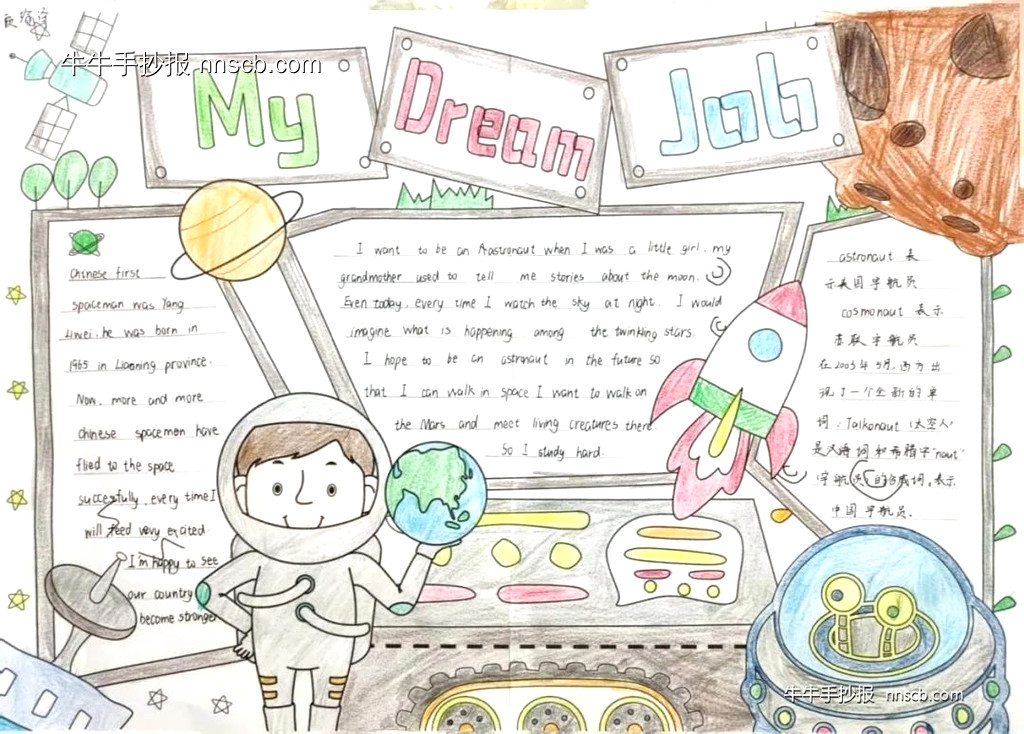 牛牛手抄报 nnscb.com
My Dream Job
Chinese first
spaceman was Yang
Liwei. he was born in
1965 in Liaoning province.
Now, more and more
chinese spacemen have
flied to the space
successfully. every time I
will feed very excited
I'm happy to see
our country
become stronger
I want to be an Aastronaut when I was a little girl. my
grandmother used to tell me stories about the moon.
Even today, every time I watch the sky at night. I would
imagine what is happening among the twinkling stars.
I hope to be an astronaut in the future so
that I can walk in space I want to walk on
the Mars and meet living creatures there
So I study hard.
astronaut 表
示美国宇航员
cosmonaut 表示
苏联宇航员
在2003年5月，西方出
现了一个全新的单
词：Taikonaut（太空人）
是汉语词和希腊字"naut"
宇航员）的合成词，表示
中国宇航员.
牛牛手抄报 nnscb.com